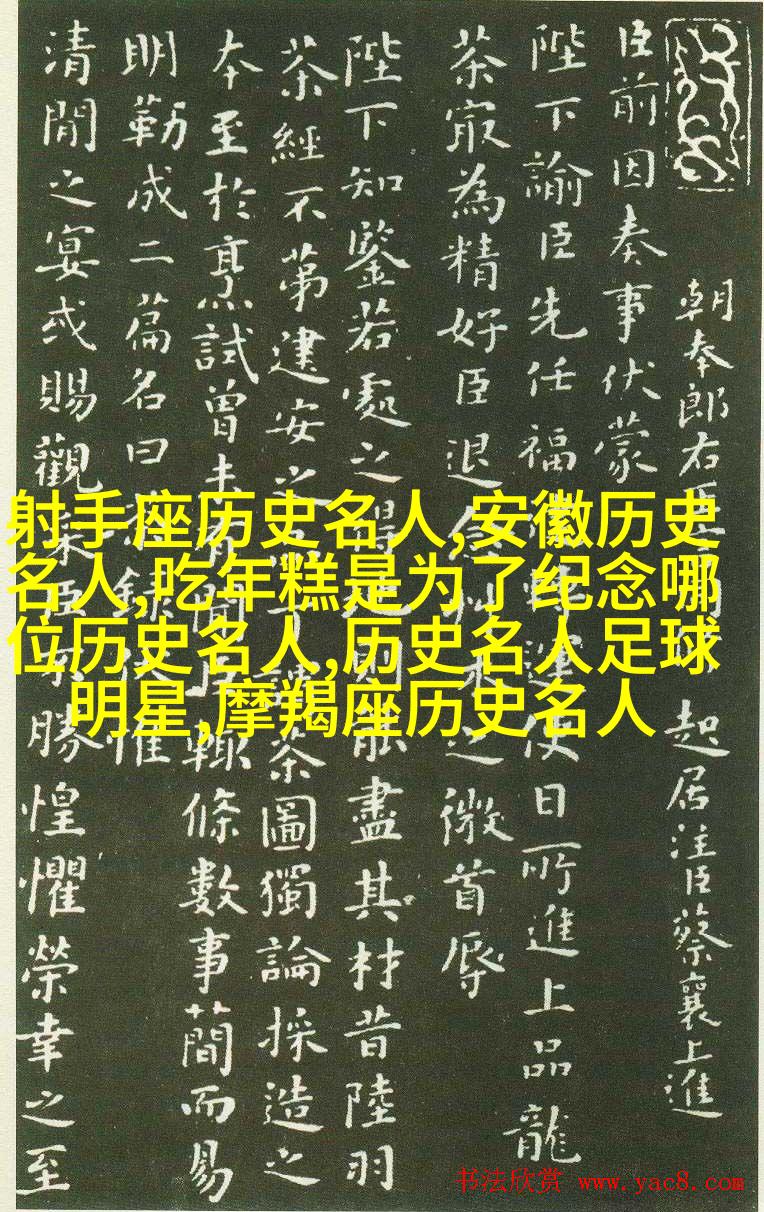 朝奉郎右正 起居注臣蔡襄上進
臣前因奏事伏蒙
陛下諭臣先任福 運使日所進上品龍
茶最為精好臣退念 之微首辱
陛下知鑒若處之得 能盡其材昔陸羽
茶經不第建安之 謂茶圖獨論採造之
本至於烹試曾未有聞臣輒條數事簡而易
明勒成二篇名曰 錄伏惟
清閒之宴或賜觀采臣不勝惶懼榮幸之至
射手座历史名人,安徽历史
名人,吃年糕是为了纪念哪
位历史名人,历史名人足球
明星,摩羯座历史名人
书法欣赏 www.yac8.com